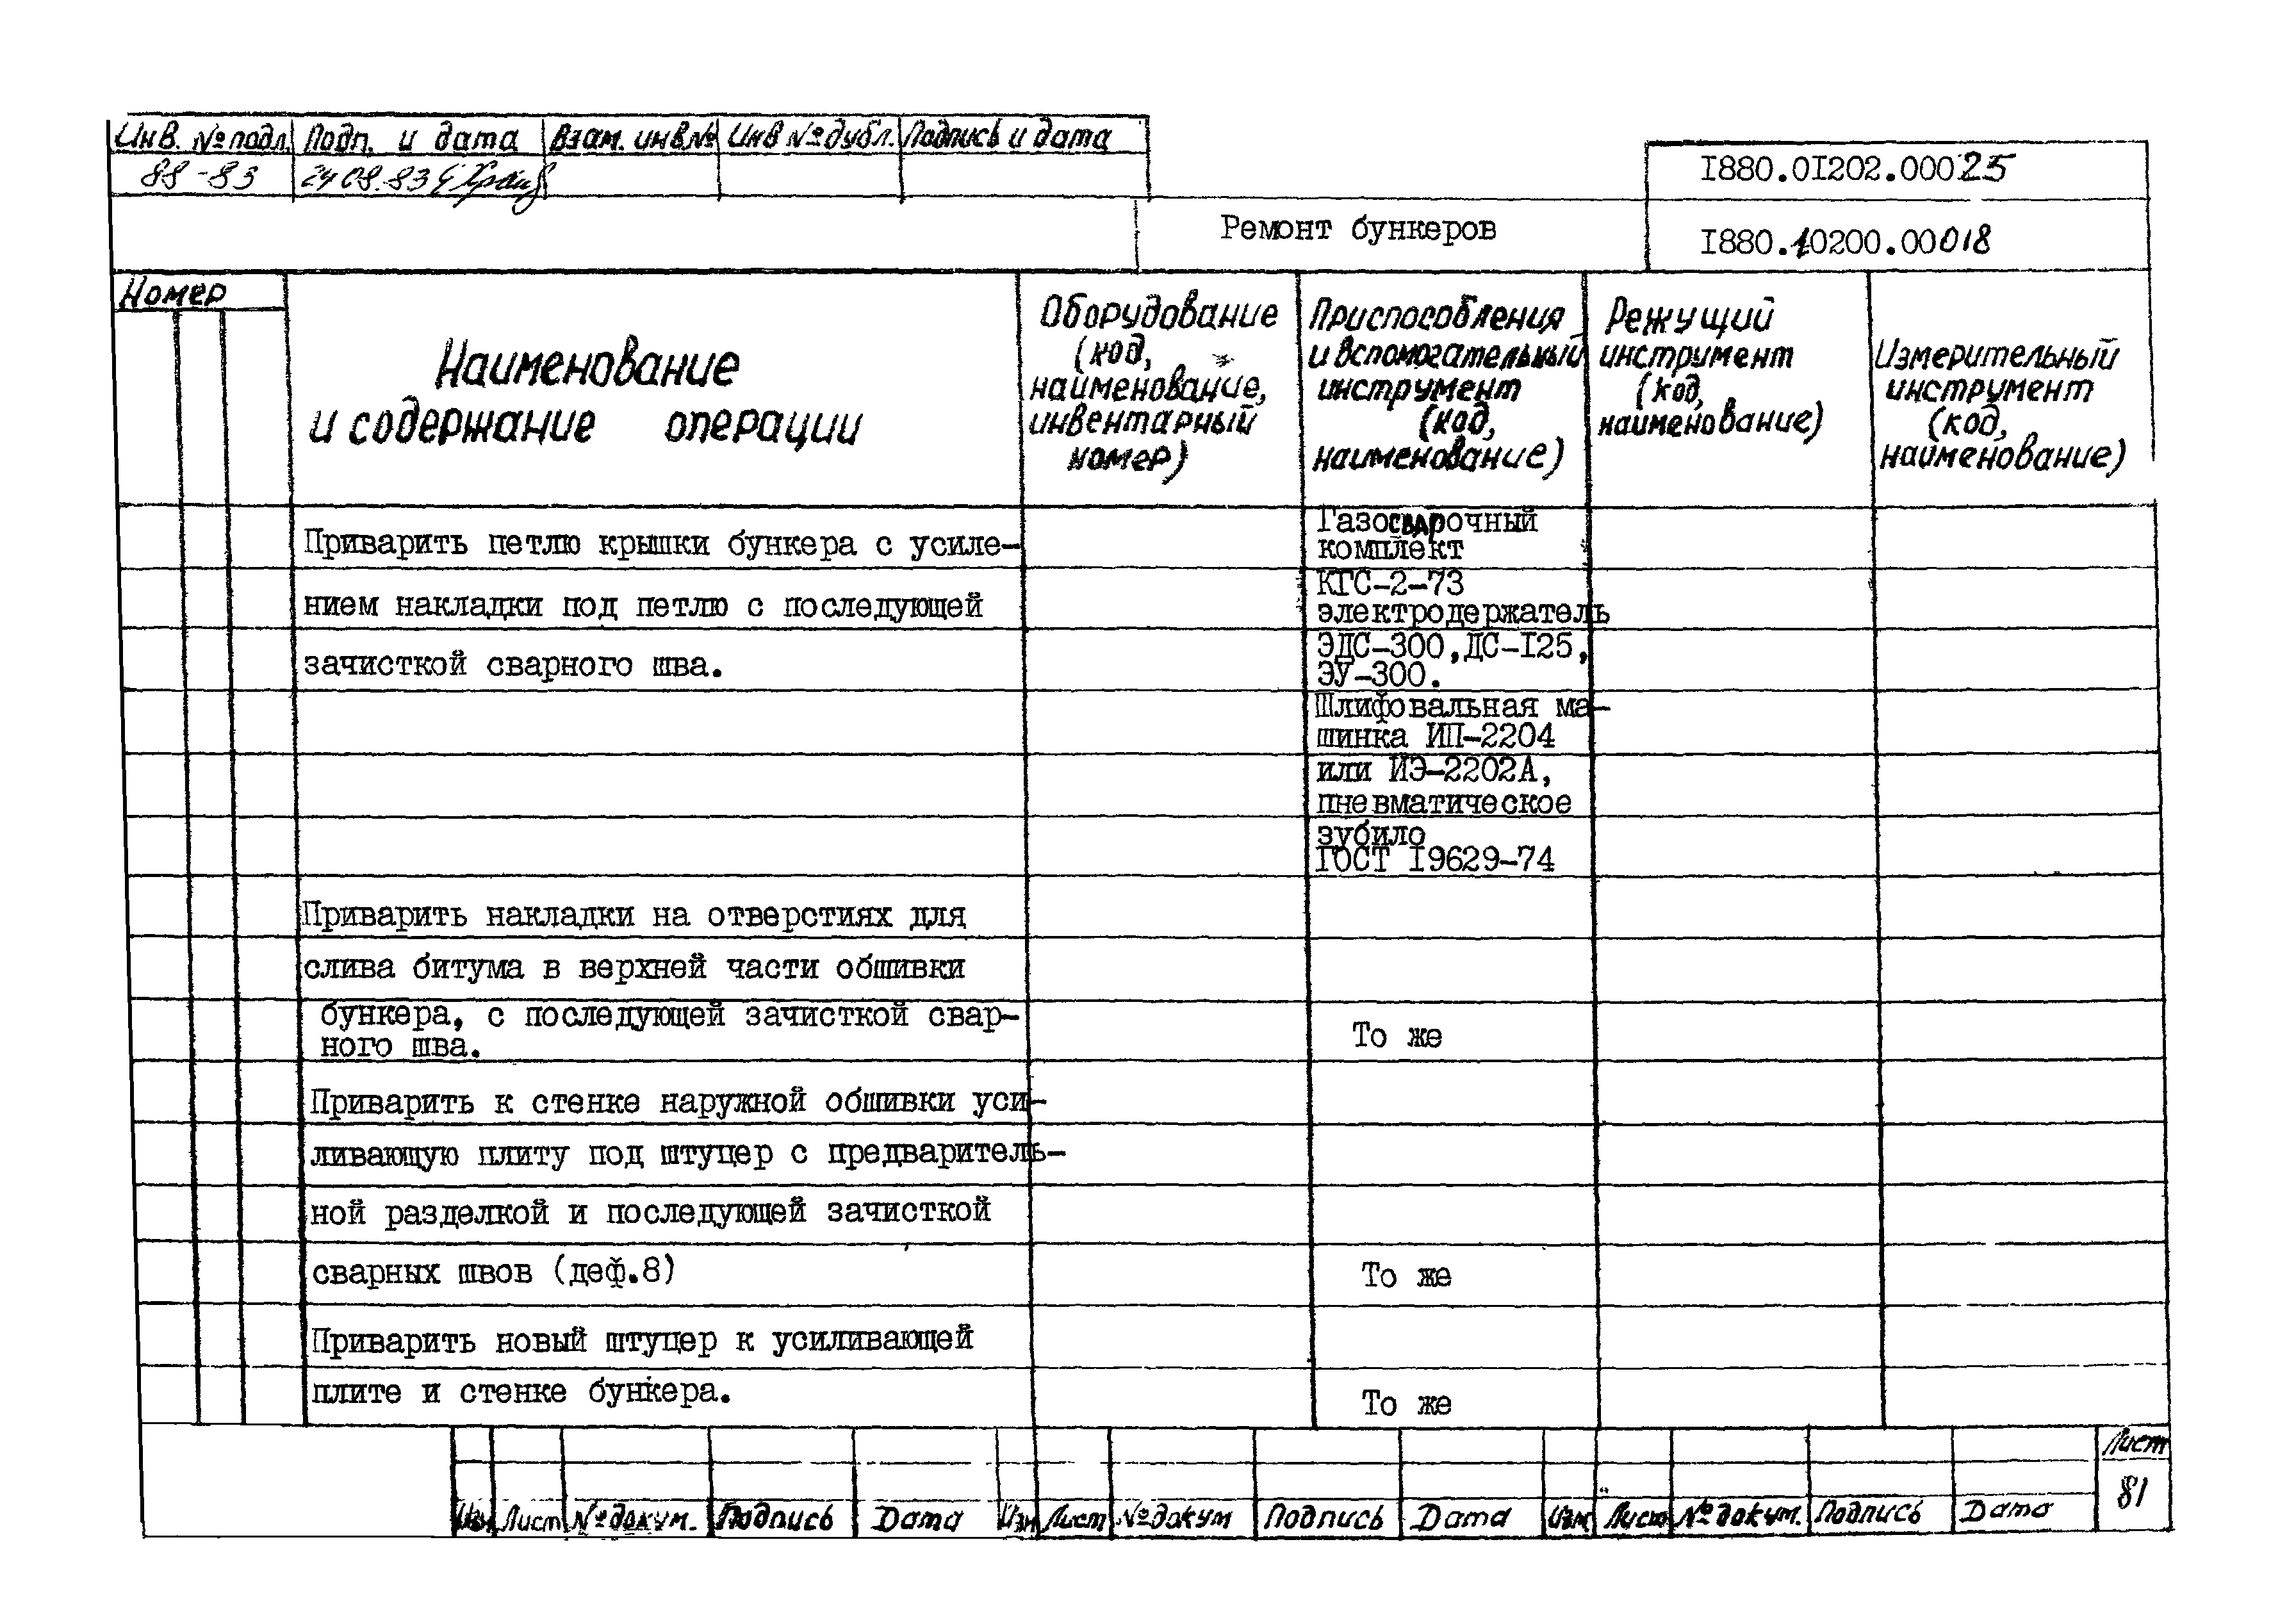 Инв. № подл. Подп. и дата Взам. инв № Инв № дубл. Подпись и дата
88-83 24 08.83
I880.0I202.00025
Ремонт бункеров
I880.10200.00018
Номер
Наименование
и содержание операции
Оборудование
(код,
наименование,
инвентарный
номер)
Приспособления
и вспомогательный
инструмент
(код,
наименование)
Режущий
инструмент
(код,
наименование)
Измерительный
инструмент
(код,
наименование)
Приварить петлю крышки бункера с усиле-
нием накладки под петлю с последующей
зачисткой сварного шва.
Газосварочный
комплект
КГС-2-73
электродержатель
ЭДС-300, ДС-I25,
ЭУ-300.
Шлифовальная ма-
шинка ИП-2204
или ИЭ-2202А,
пневматическое
зубило
ГОСТ I9629-74
Приварить накладки на отверстиях для
слива битума в верхней части обшивки
бункера, с последующей зачисткой свар-
ного шва.
То же
Приварить к стенке наружной обшивки уси-
ливающую плиту под штуцер с предваритель-
ной разделкой и последующей зачисткой
сварных швов (деф.8)
То же
Приварить новый штуцер к усиливающей
плите и стенке бункера.
То же
Изм Лист № докум. Подпись Дата Изм Лист № докум Подпись Дата Изм Лист № докум. Подпись Дата
Лист
81